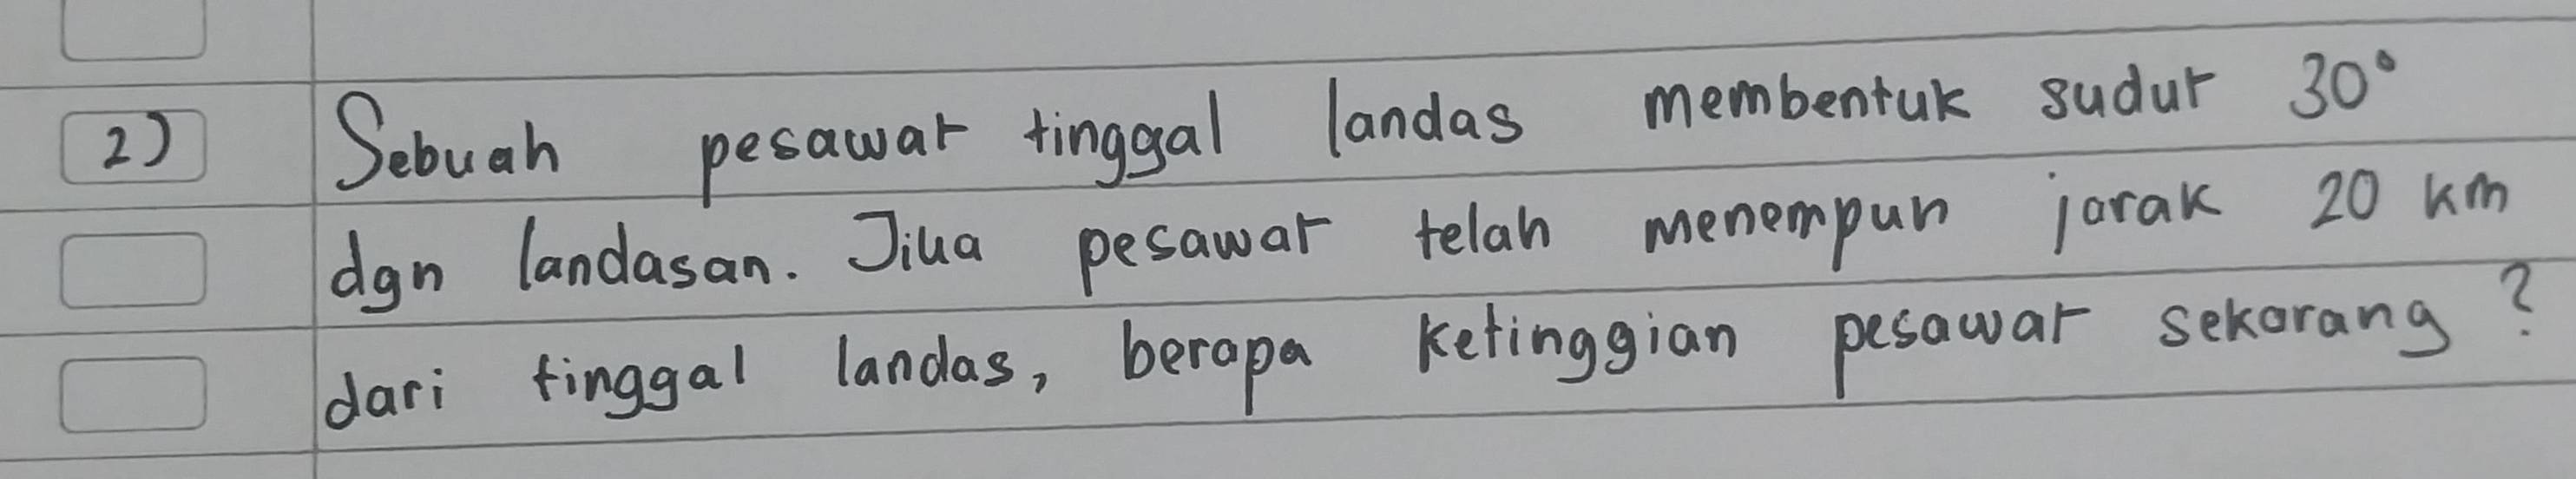 2) Sebuah pesawat tinggal landas membentuk sudut 30°
dgn landasan. Jika pesawat telah menempuh jarak 20 km
dari tinggal landas, berapa ketinggian pesawat sekarang?